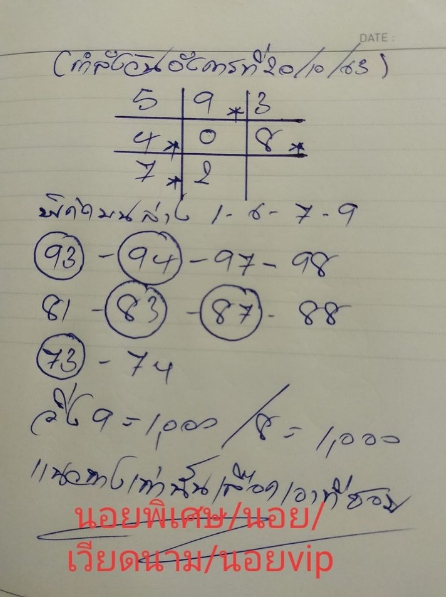 DATE :
(กำลังวันอังคารที่ 20/10/63)
5 9* 3
4* 0 8*
7* 2
พิกัดบนล่าง 1-6-7-9
93 - 94 - 97 - 98
81 - 83 - 87 - 88
73 - 74
วิ่ง 9 = 1,000 / 8 = 1,000
แนวทางเท่านั้นเลือกเอาที่ชอบ
นอยพิเศษ/นอย/
เวียดนาม/นอยvip